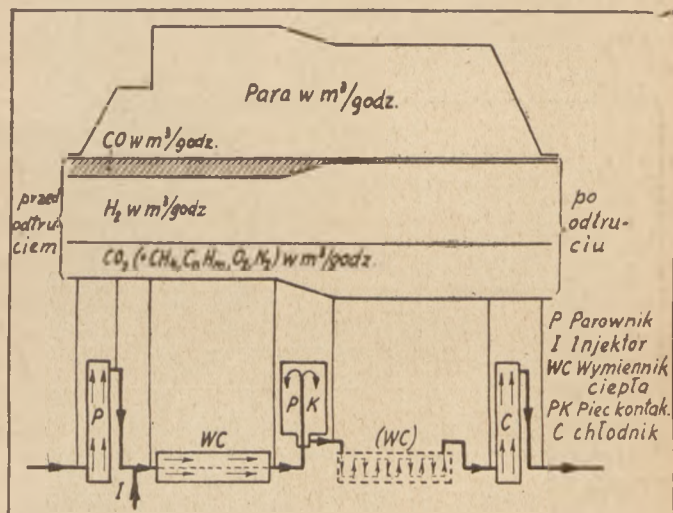 Para w m³/godz.
CO w m³/godz.
przed
odtru-
ciem
H₂ w m³/godz
po
odtru-
ciu
CO₂ (+CH₄, CₙHₘ, O₂, N₂) w m³/godz.
P Parownik
I Injektor
WC Wymiennik
ciepła
PK Piec kontak.
C chłodnik
P
I
WC
P K
(WC)
C